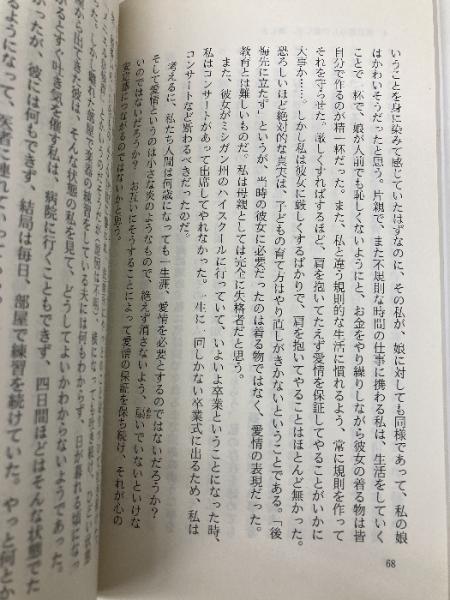 いうことを身に染みて感じていたはずなのに、その私が、娘に対しても同様であって、私の娘
はかわいそうだったと思う。片親で、また不規則な時間の仕事に携わる私は、生活をしていく
ことで一杯で、娘が人前でも恥しくないようにと、お金をやり繰りしながら彼女の着る物は皆
自分で作るのが精一杯だった。また、私と違う規則的な生活に慣れるよう、常に規則を作って
それを守らせた。厳しくすればするほど、肩を抱いてたえず愛情を保証してやることがいかに
大事か……。しかし私は彼女に厳しくするばかりで、肩を抱いてやることはほとんど無かった。
恐ろしいほど絶対的な真実は、子どもの育て方はやり直しがきかないということである。「後
悔先に立たず」というが、当時の彼女に必要だったのは着る物ではなく、愛情の表現だった。
教育とは難しいものだ。私は母親としては完全に失格者だと思う。
また、彼女がミシガン州のハイスクールに行っていて、いよいよ卒業ということになった時、
私はコンサートがあって出席してやれなかった。一生に一回しかない卒業式に出るため、私は
コンサートなど断わるべきだったのだ。
考えるに、私たち人間は何歳になっても一生涯、愛情を必要とするのではないだろうか？
そして愛情というのは小さな炎のようなもので、絶えず消さないよう、扇いでいないといけな
いのではないだろうか？　お互いにそうすることによって愛情の保証を保ち続け、それが心の
安定感につながるのではないかと思う。
68
から出てきた彼は、そんな状態の私を見て、どうしてよいかわからないようであった。
かると すぐ、吐き気を催す私は、病院に行くこともできず、四日間ほどはそんな状態でた
たが、彼には何もできず、結局は毎日、部屋で練習を続けていた。やっと何とか
るようになって、医者に連れていって